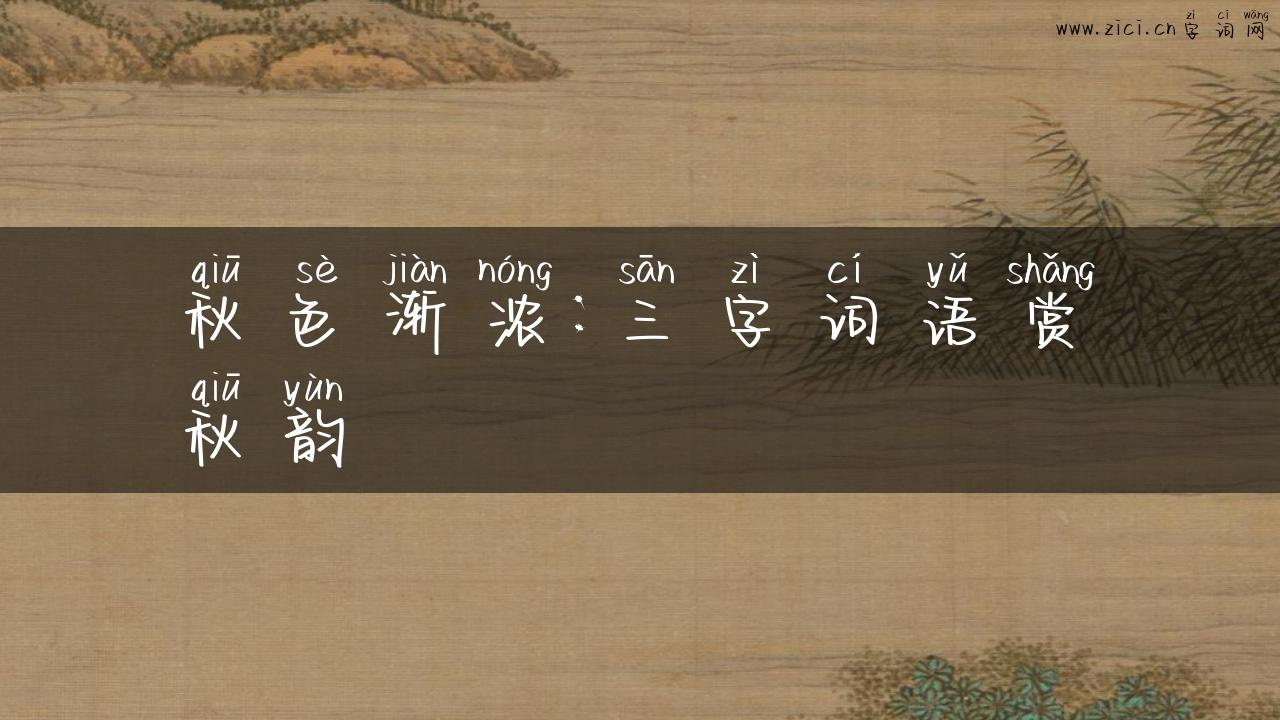 zì cí wǎng
www.zici.cn字词网
qiū sè jiàn nóng sān zì cí yǔ shǎng
秋色渐浓：三字词语赏
qiū yùn
秋韵